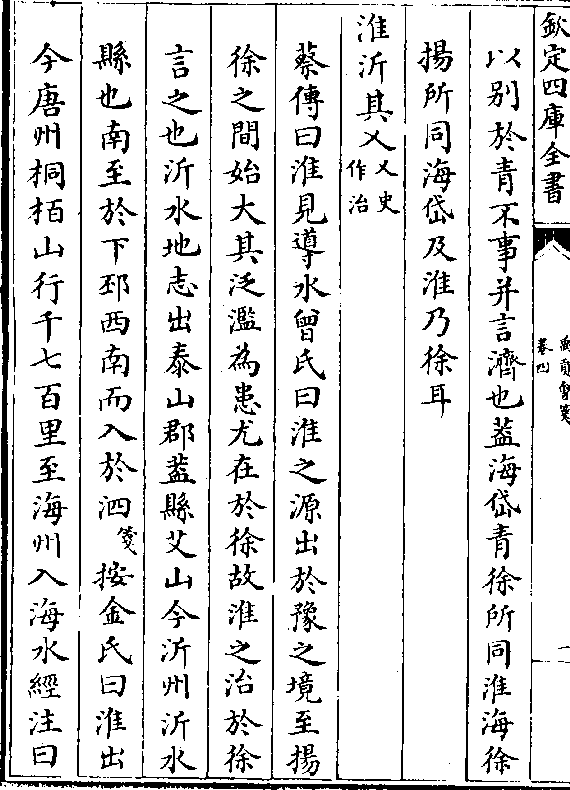 欽定四庫全書
禹貢會箋
卷四
一
以别於青不事并言濟也葢海岱青徐所同淮海徐
揚所同海岱及淮乃徐耳
淮沂其乂乂史作治
蔡傳曰淮見導水曾氏曰淮之源出於豫之境至揚
徐之間始大其泛濫為患尤在於徐故淮之治於徐
言之也沂水地志出泰山郡葢縣艾山今沂州沂水
縣也南至於下邳西南而入於泗箋按金氏曰淮出
今唐州桐栢山行千七百里至海州入海水經注曰